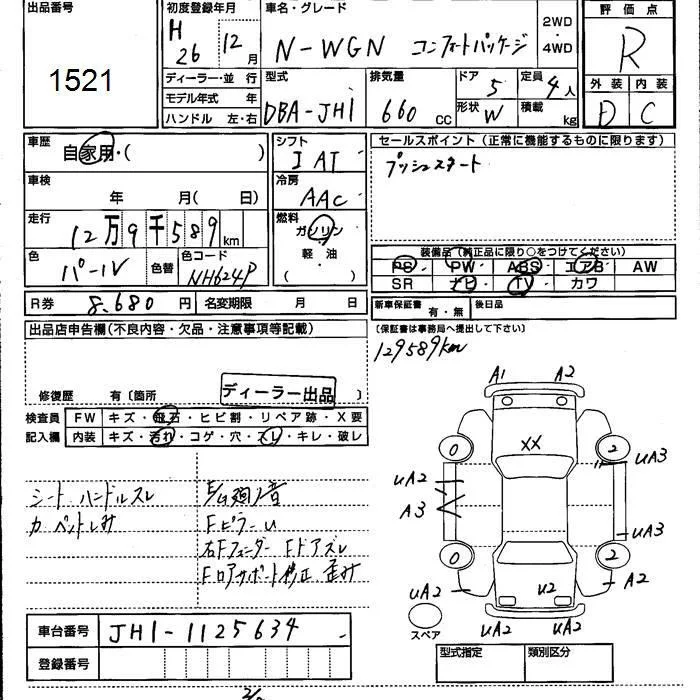 出品番号
1521
初度登録年月
H 26 年 12 月
車名・グレード
N-WGN コンフォートパッケージ
2WD
4WD
評価点
R
外装 内装
D C
ディーラー・並行
モデル年式 年
ハンドル 左・右
型式
DBA-JH1
排気量
660 cc
ドア 5
形状 W
定員 4人
積載 kg
車歴
自家用・( )
車検
年 月( 日)
走行
12万9千589 km
色 パール
色替
色コード NH624P
シフト
I AT
冷房
AAC
燃料
ガソリン
軽・油
( )
セールスポイント(正常に機能するものに限ります)
プッシュスタート
装備品(純正品に限り○をつけてください)
PS PW ABS エアB AW
SR ナビ TV カワ
R券 8,680 円 名変期限 月 日
新車保証書 有・無 後日品
(保証書は事務局へ提出して下さい)
129589km
出品店申告欄(不良内容・欠品・注意事項等記載)
修復歴 有〔箇所 〕
ディーラー出品
検査員 FW キズ・飛石・ヒビ割・リペア跡・X要
記入欄 内装 キズ・汚れ・コゲ・穴・スレ・キレ・破レ
シート ハンドルスレ
カーペットしみ
E/G廻り音
Fピラーu
右Fフェンダー Fドアズレ
Fロアサポート修正 歪み
A1 A2
XX
0 2
UA2 UA3
A3
UA3
0 2
UA2 A2
U2
UA2 UA2
スペア
車台番号 JH1-1125634
登録番号
型式指定 類別区分